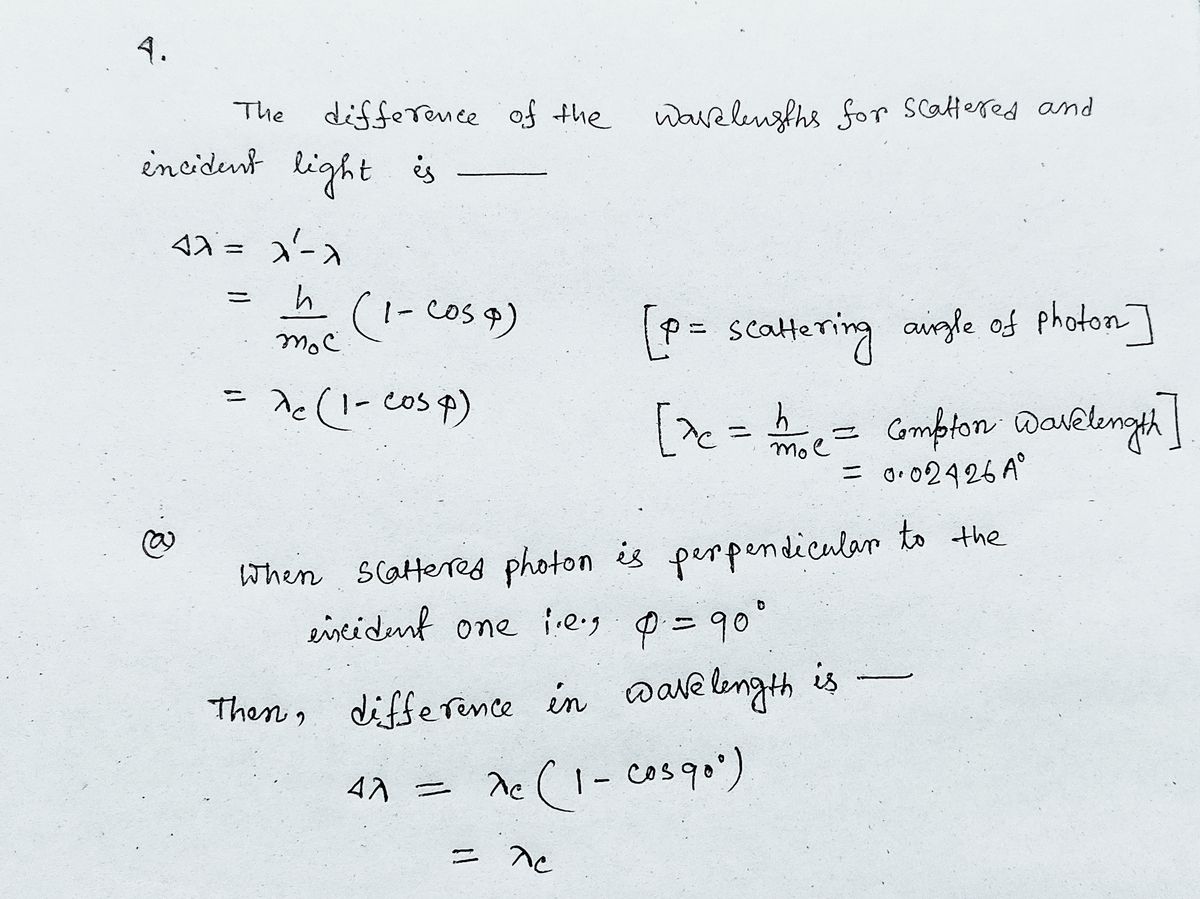 4.
The difference of the wavelengths for scattered and
incident light is —
Δλ = λ' - λ
= h/m₀c (1 - cos φ) [φ = scattering angle of photon]
= λc (1 - cos φ) [λc = h/m₀c = Compton wavelength]
= 0.02426 A°
(a)
When scattered photon is perpendicular to the
incident one i.e., φ = 90°
Then, difference in wavelength is —
Δλ = λc (1 - cos 90°)
= λc